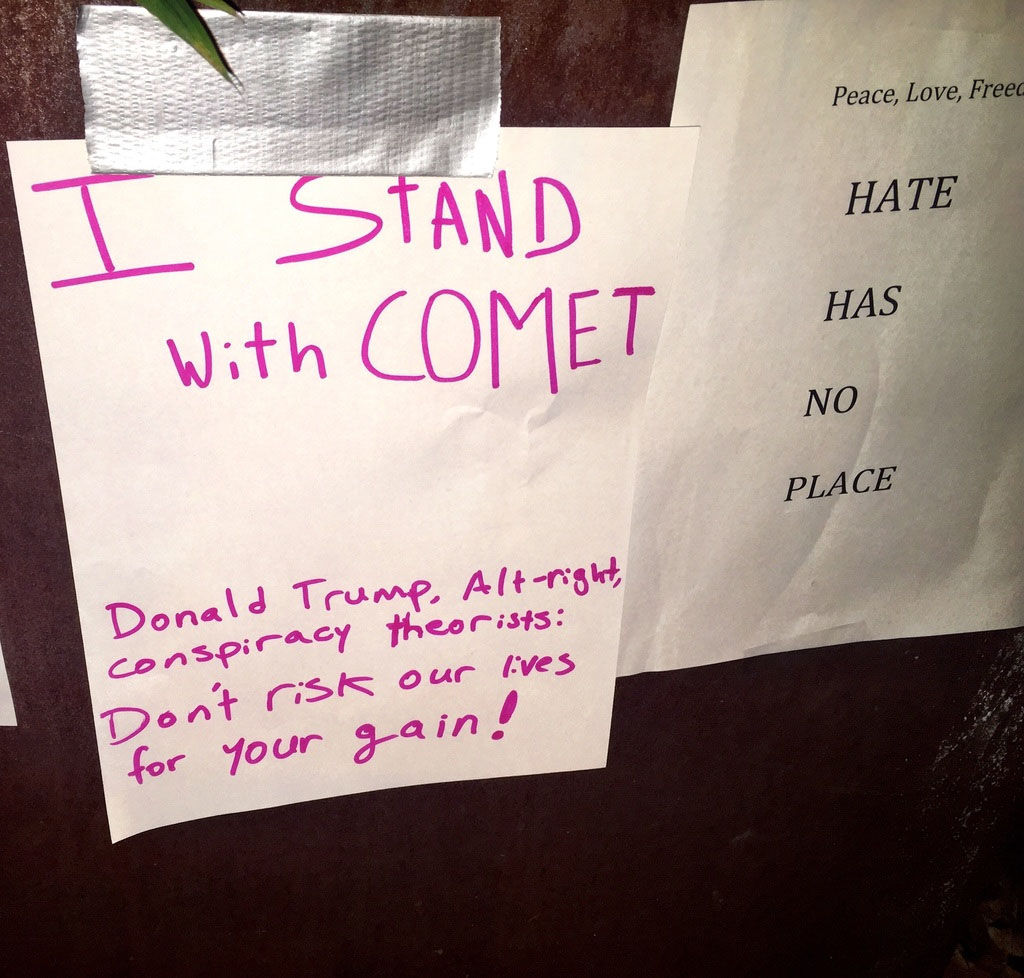 I STAND
with COMET
Donald Trump, Alt-right,
conspiracy theorists:
Don't risk our lives
for your gain!
Peace, Love, Freed
HATE
HAS
NO
PLACE